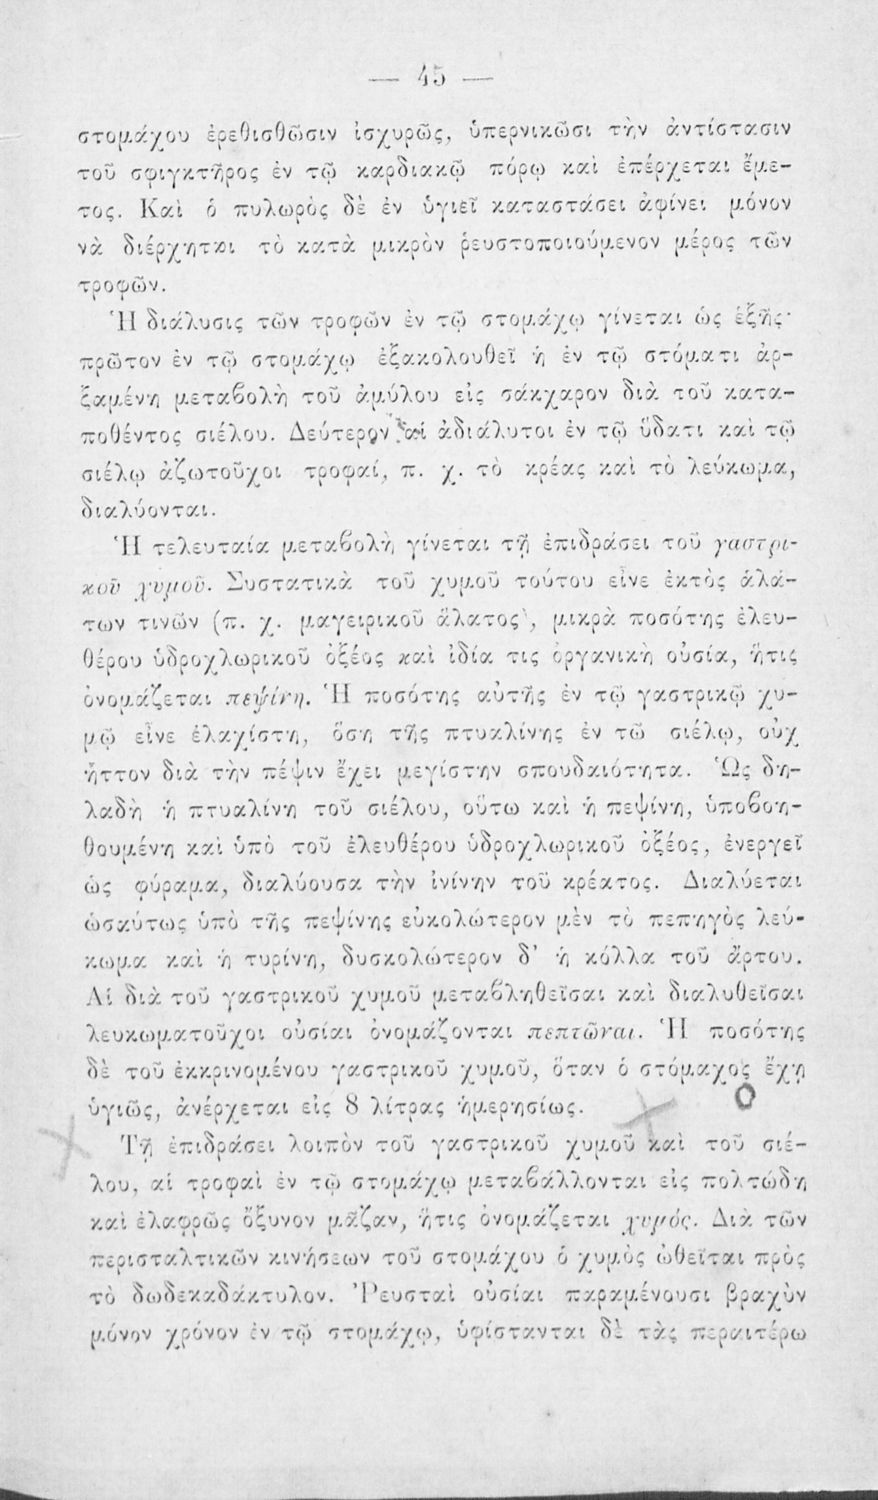 — 45 —
στομάχου ἐρεθισθῶσιν ἰσχυρῶς, ὑπερνικῶσι τὴν ἀντίστασιν
τοῦ σφιγκτῆρος ἐν τῷ καρδιακῷ πόρῳ καὶ ἐπέρχεται ἔμε-
τος. Καὶ ὁ πυλωρὸς δὲ ἐν ὑγιεῖ καταστάσει ἀφίνει μόνον
νὰ διέρχηται τὸ κατὰ μικρὸν ῥευστοποιούμενον μέρος τῶν
τροφῶν.
Ἡ διάλυσις τῶν τροφῶν ἐν τῷ στομάχῳ γίνεται ὡς ἑξῆς·
πρῶτον ἐν τῷ στομάχῳ ἐξακολουθεῖ ἡ ἐν τῷ στόματι ἀρ-
ξαμένη μεταβολὴ τοῦ ἀμύλου εἰς σάκχαρον διὰ τοῦ κατα-
ποθέντος σιέλου. Δεύτερον αἱ ἀδιάλυτοι ἐν τῷ ὕδατι καὶ τῷ
σιέλῳ ἀζωτοῦχοι τροφαί, π. χ. τὸ κρέας καὶ τὸ λεύκωμα,
διαλύονται.
Ἡ τελευταία μεταβολὴ γίνεται τῇ ἐπιδράσει τοῦ γαστρι-
κοῦ χυμοῦ. Συστατικὰ τοῦ χυμοῦ τούτου εἶνε ἐκτὸς ἁλά-
των τινῶν (π. χ. μαγειρικοῦ ἅλατος), μικρὰ ποσότης ἐλευ-
θέρου ὑδροχλωρικοῦ ὀξέος καὶ ἰδία τις ὀργανικὴ οὐσία, ἥτις
ὀνομάζεται πεψίνη. Ἡ ποσότης αὐτῆς ἐν τῷ γαστρικῷ χυ-
μῷ εἶνε ἐλαχίστη, ὅση τῆς πτυαλίνης ἐν τῶ σιέλῳ, οὐχ
ἧττον διὰ τὴν πέψιν ἔχει μεγίστην σπουδαιότητα. Ὡς δη-
λαδὴ ἡ πτυαλίνη τοῦ σιέλου, οὕτω καὶ ἡ πεψίνη, ὑποβοη-
θουμένη καὶ ὑπὸ τοῦ ἐλευθέρου ὑδροχλωρικοῦ ὀξέος, ἐνεργεῖ
ὡς φύραμα, διαλύουσα τὴν ἰνίνην τοῦ κρέατος. Διαλύεται
ὡσαύτως ὑπὸ τῆς πεψίνης εὐκολώτερον μὲν τὸ πεπηγὸς λεύ-
κωμα καὶ ἡ τυρίνη, δυσκολώτερον δ' ἡ κόλλα τοῦ ἄρτου.
Αἱ διὰ τοῦ γαστρικοῦ χυμοῦ μεταβληθεῖσαι καὶ διαλυθεῖσαι
λευκωματοῦχοι οὐσίαι ὀνομάζονται πεπτῶναι. Ἡ ποσότης
δὲ τοῦ ἐκκρινομένου γαστρικοῦ χυμοῦ, ὅταν ὁ στόμαχος ἔχῃ
ὑγιῶς, ἀνέρχεται εἰς 8 λίτρας ἡμερησίως.
Τῇ ἐπιδράσει λοιπὸν τοῦ γαστρικοῦ χυμοῦ καὶ τοῦ σιέ-
λου, αἱ τροφαὶ ἐν τῷ στομάχῳ μεταβάλλονται εἰς πολτώδη
καὶ ἐλαφρῶς ὄξυνον μᾶζαν, ἥτις ὀνομάζεται χυμός. Διὰ τῶν
περισταλτικῶν κινήσεων τοῦ στομάχου ὁ χυμὸς ὠθεῖται πρὸς
τὸ δωδεκαδάκτυλον. Ῥευσταὶ οὐσίαι παραμένουσι βραχὺν
μόνον χρόνον ἐν τῷ στομάχῳ, ὑφίστανται δὲ τὰς περαιτέρω